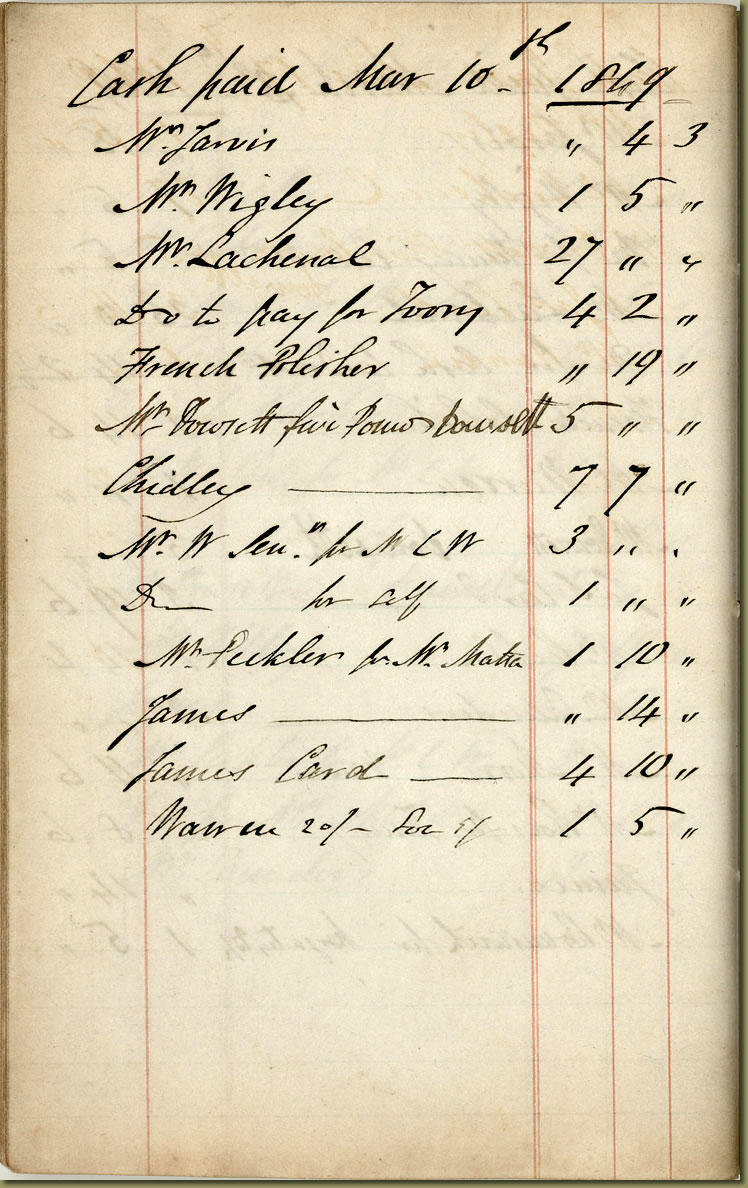 Cash paid Mar 10th 1869
Mr Jarvis " 4 3
Mr Wigley 1 5 "
Mr Lachenal 27 " "
Do to pay for Ivory 4 2 "
French Polisher " 19 "
Mr Dowsett five Pounds Dowsett 5 " "
Chidley — 7 7 "
Mr W Senr for M L W 3 " "
Do for self 1 " "
Mr Peckler for Mr 1 10 "
James — " 14 "
James Card — 4 10 "
Warren 20/- 5/ 1 5 "